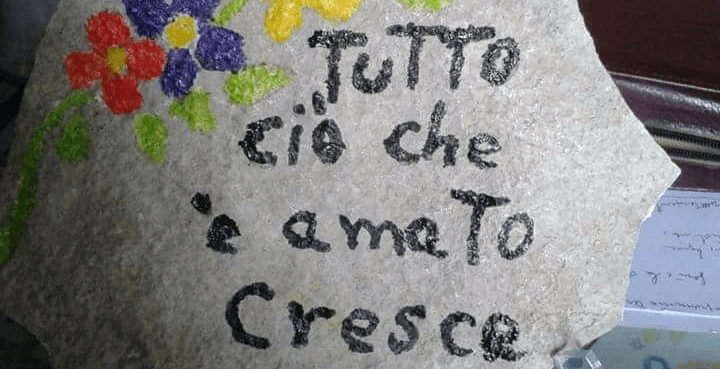 TuTTo
ciò che
è amaTo
Cresce